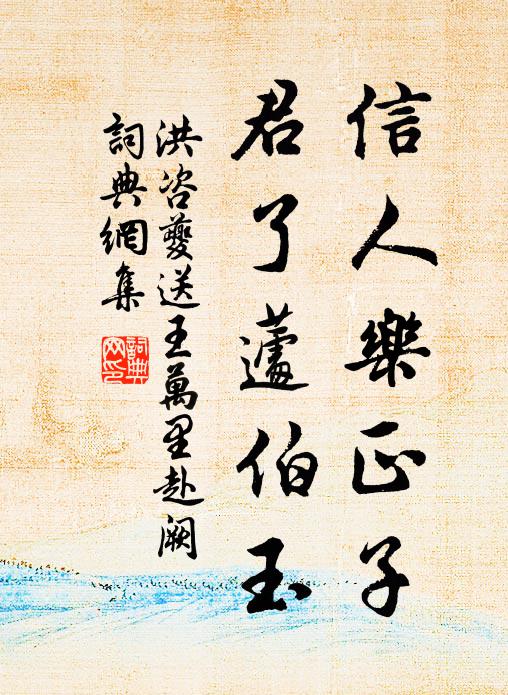 信人樂正子
君了蘧伯玉
洪咨夔送王萬里赴闕
詞典網集
詞典網印